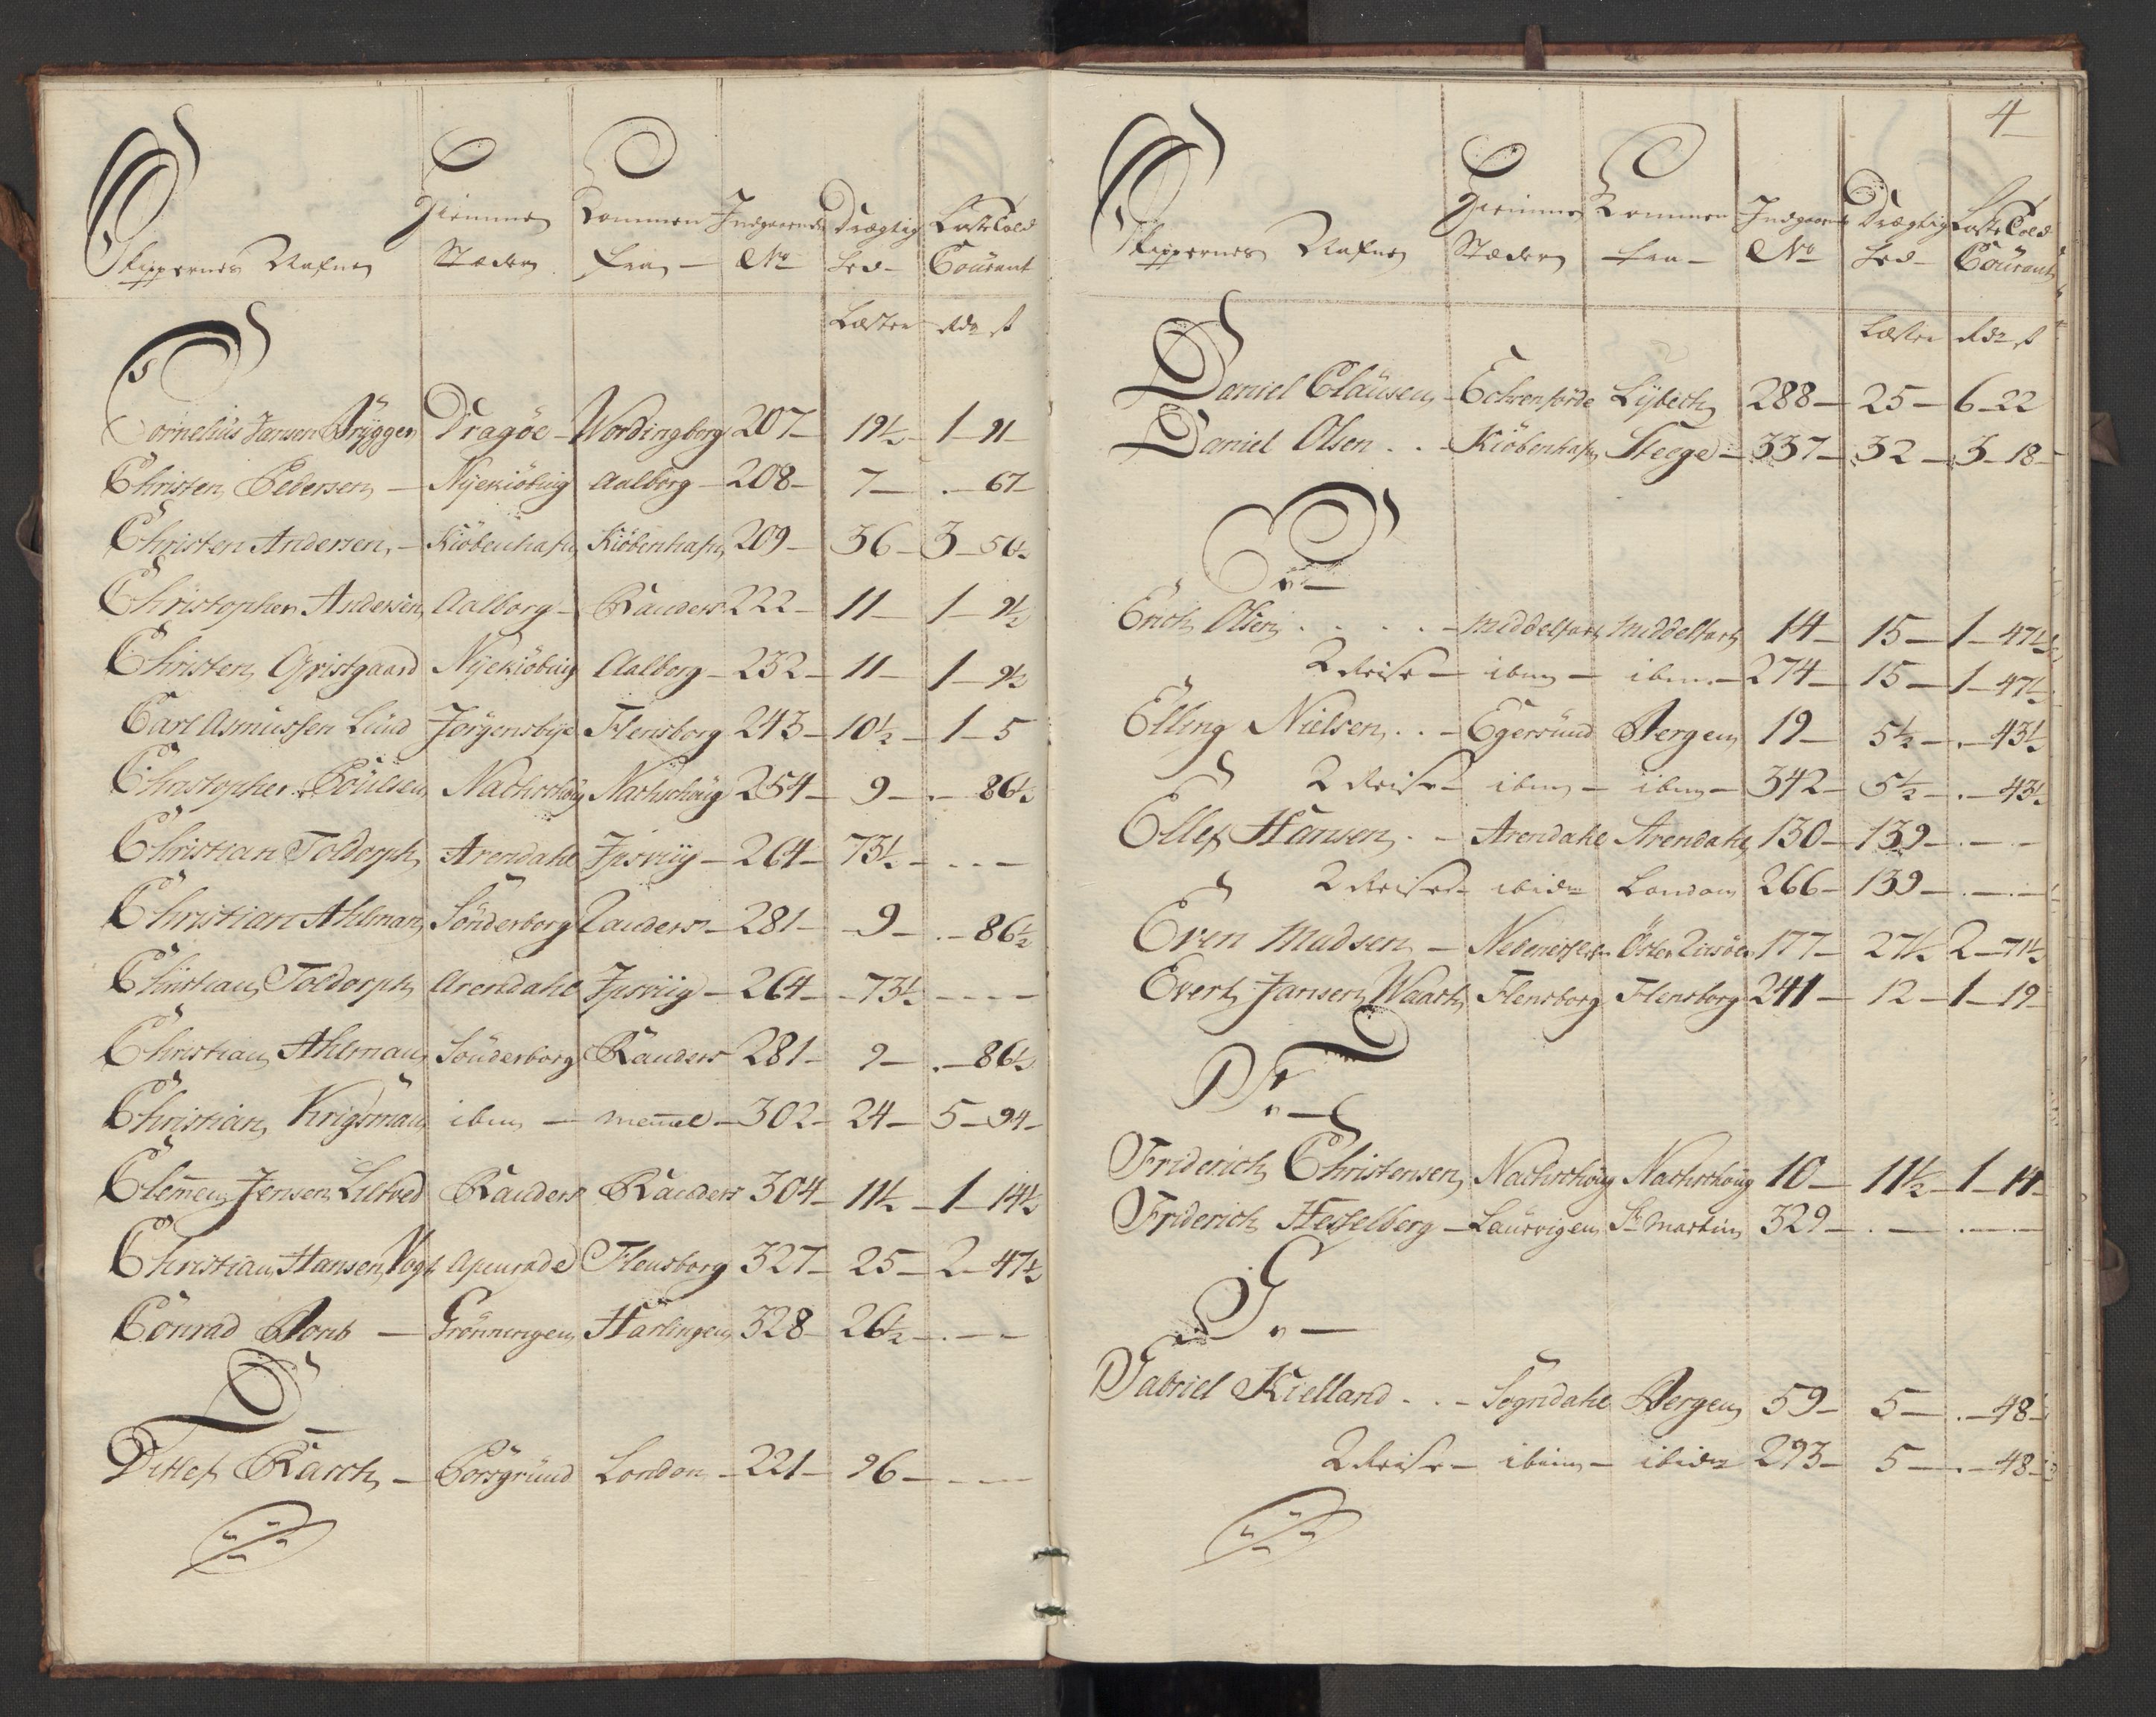 Skippernes Nafne Hiemme Kommen Indgaaende Drægtig Læste Told
Stæder fra — No hed — Courant
Læster Rdr ß
Cornelius Jansen Brygger Dragöe — Wordingborg 207 — 19½ — 1 — 91 —
Christen Pedersen — Nyekiöbing Aalborg — 208 — 7 — . — 67 —
Christen Andersen — Kiöbenhafn Kiöbenhafn 209 — 36 — 3 — 50½
Christopher Andersen Aalborg — Randers 222 — 11 — 1 — 9½
Christen Qvistgaard Nyekiöbing Aalborg — 232 — 11 — 1 — 9½
Carl Asmussen Lund Jörgensbye Flensborg 243 — 10½ — 1 — 5
Christopher Poulsen Nachschoug Nachschoug 254 — 9 — . — 86½
Christian Toldorph Arendahl Ipsviig — 264 — 73½ — . — —
Christian Ahlman Sönderborg Randers — 281 — 9 — . — 86½
Christian Toldorph Arendahl Ipsviig — 264 — 73½ — — —
Christian Ahlman Sönderborg Randers 281 — 9 — . — 86½
Christian Krigsman ibm — Memel — 302 — 24 — 5 — 94 —
Clemen Jensen Randers Randers 304 — 11½ — 1 — 14½
Christian Hansen Vogt Apenrade Flensborg 327 — 25 — 2 — 47½
Conrad — Grönningen Harlingen 328 — 26½ — . — —
D —
Ditlef Rasch — Porsgrund London — 221 — 96 — — —
4
Skippernes Nafne Hiemme Kommen Indgaaende Drægtig Læste Told
Stæder fra — No hed — Courant
Læster Rdr ß
Daniel Clausen — Eckrenförde Lybech 288 — 25 — 6 — 22
Daniel Olsen . . — Kiöbenhafn Steege — 337 — 32 — 3 — 18 —
E . —
Erich Olsen . . . . — Middelfart Middelfart 14 — 15 — 1 — 47½
2 Reise — ibm — ibm — 274 — 15 — 1 — 47½
Elling Nielsen . . — Egersund Bergen 19 — 5½ — . — 43½
2 Reise — ibm — ibm — 342 — 5½ — . — 43½
Ellef Hansen . — Arendahl Arendahl 130 — 139 — . — —
2 Reise — ibidm London 266 — 139 — . — . —
Even Madsen — Öster Riisöer 177 — 27½ 2 — 71½
Evert Jansen Waart Flensborg Flensborg 241 — 12 — 1 — 19 —
F . —
Friderich Christensen Nachschoug Nachschoug 10 — 11½ — 1 — 14 —
Friderich Hesselberg — Laurvigen St Martin 329 — . — . — . —
G . —
Gabriel Kielland . . — Sogndahl Bergen 59 — 5 — . — 48 —
2 Reise — ibm — ibidm 293 — 5 — . — 48 —